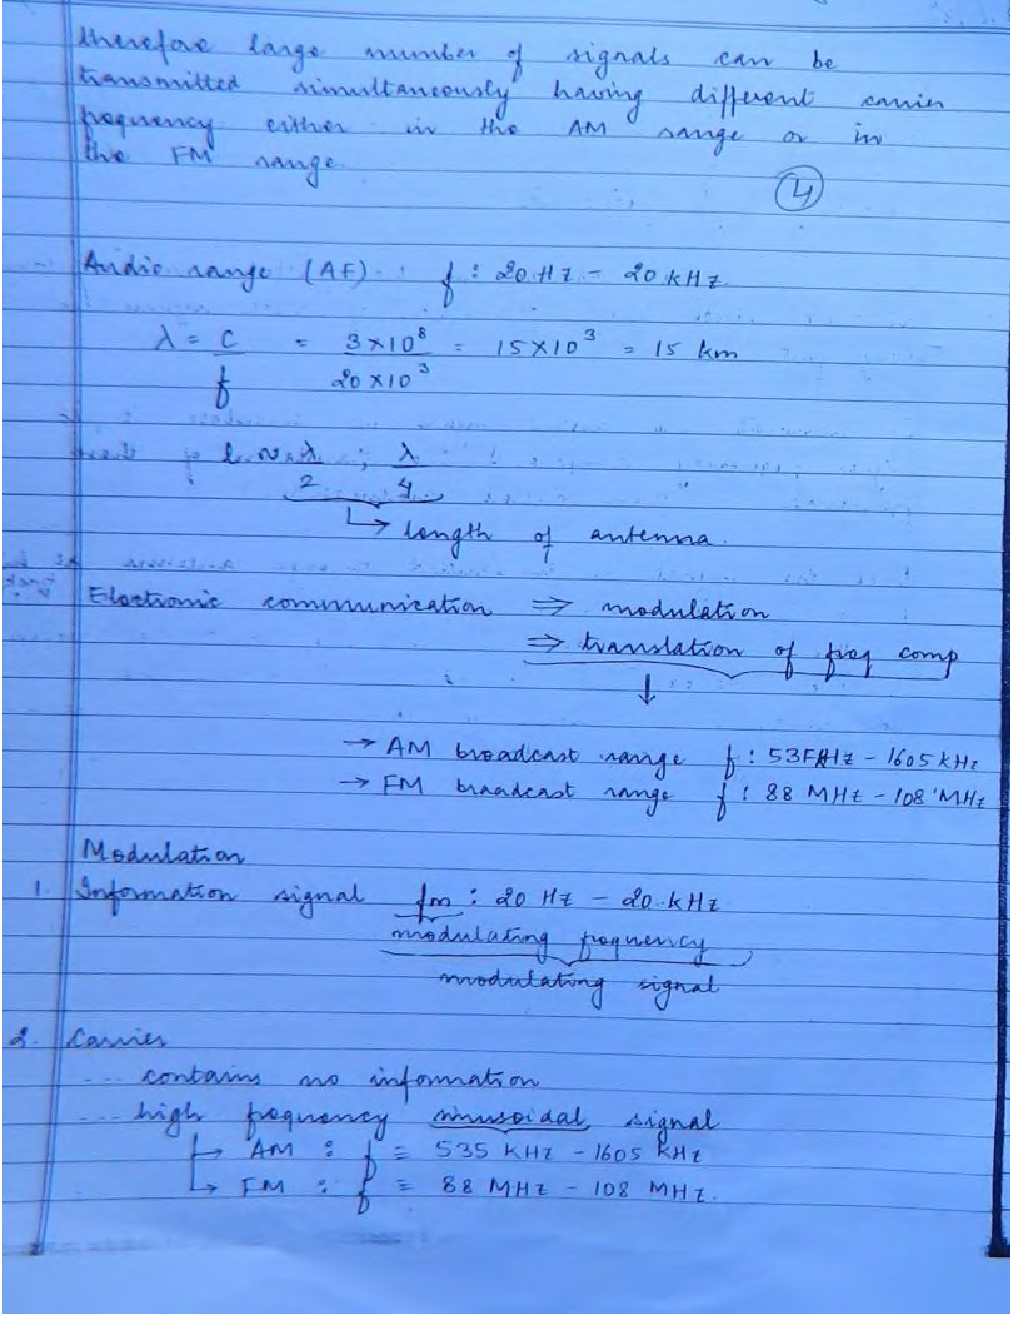 therefore large number of signals can be
transmitted simultaneously having different carrier
frequency either in the AM range or in
the FM range.
4
Audio range (AF) : f : 20 Hz - 20 kHz
λ = c/f = 3×10⁸/20×10³ = 15×10³ = 15 km
λ/2 ; λ/4
↳ length of antenna.
Electronic communication ⇒ modulation
⇒ translation of freq comp
↓
→ AM broadcast range f : 535 kHz - 1605 kHz
→ FM broadcast range f : 88 MHz - 108 MHz
Modulation
1. Information signal fm : 20 Hz - 20 kHz
modulating frequency
modulating signal
2. Carrier
... contains no information
... high frequency sinusoidal signal
↳ AM : f = 535 KHz - 1605 KHz
↳ FM : f = 88 MHz - 108 MHz.